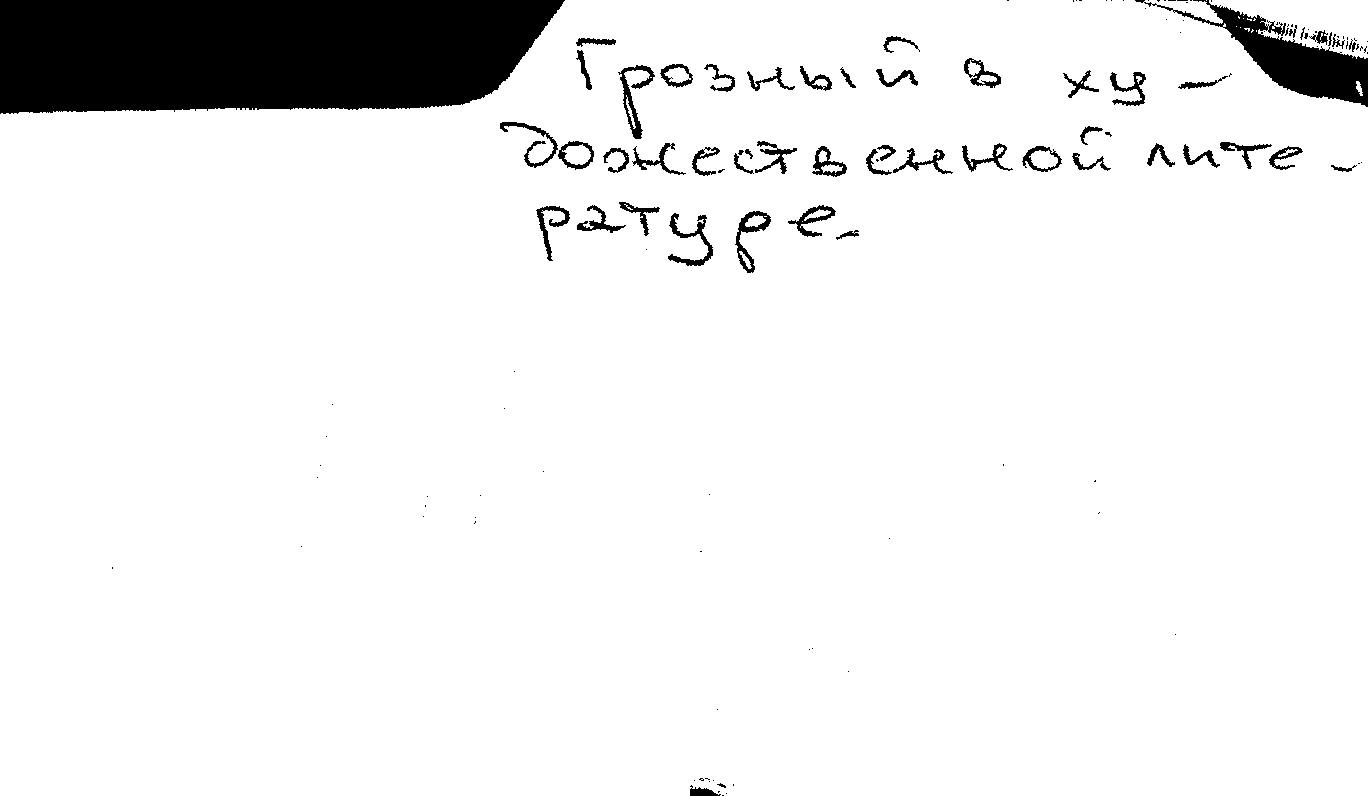 Грозный в ху-
дожественной лите-
ратуре.